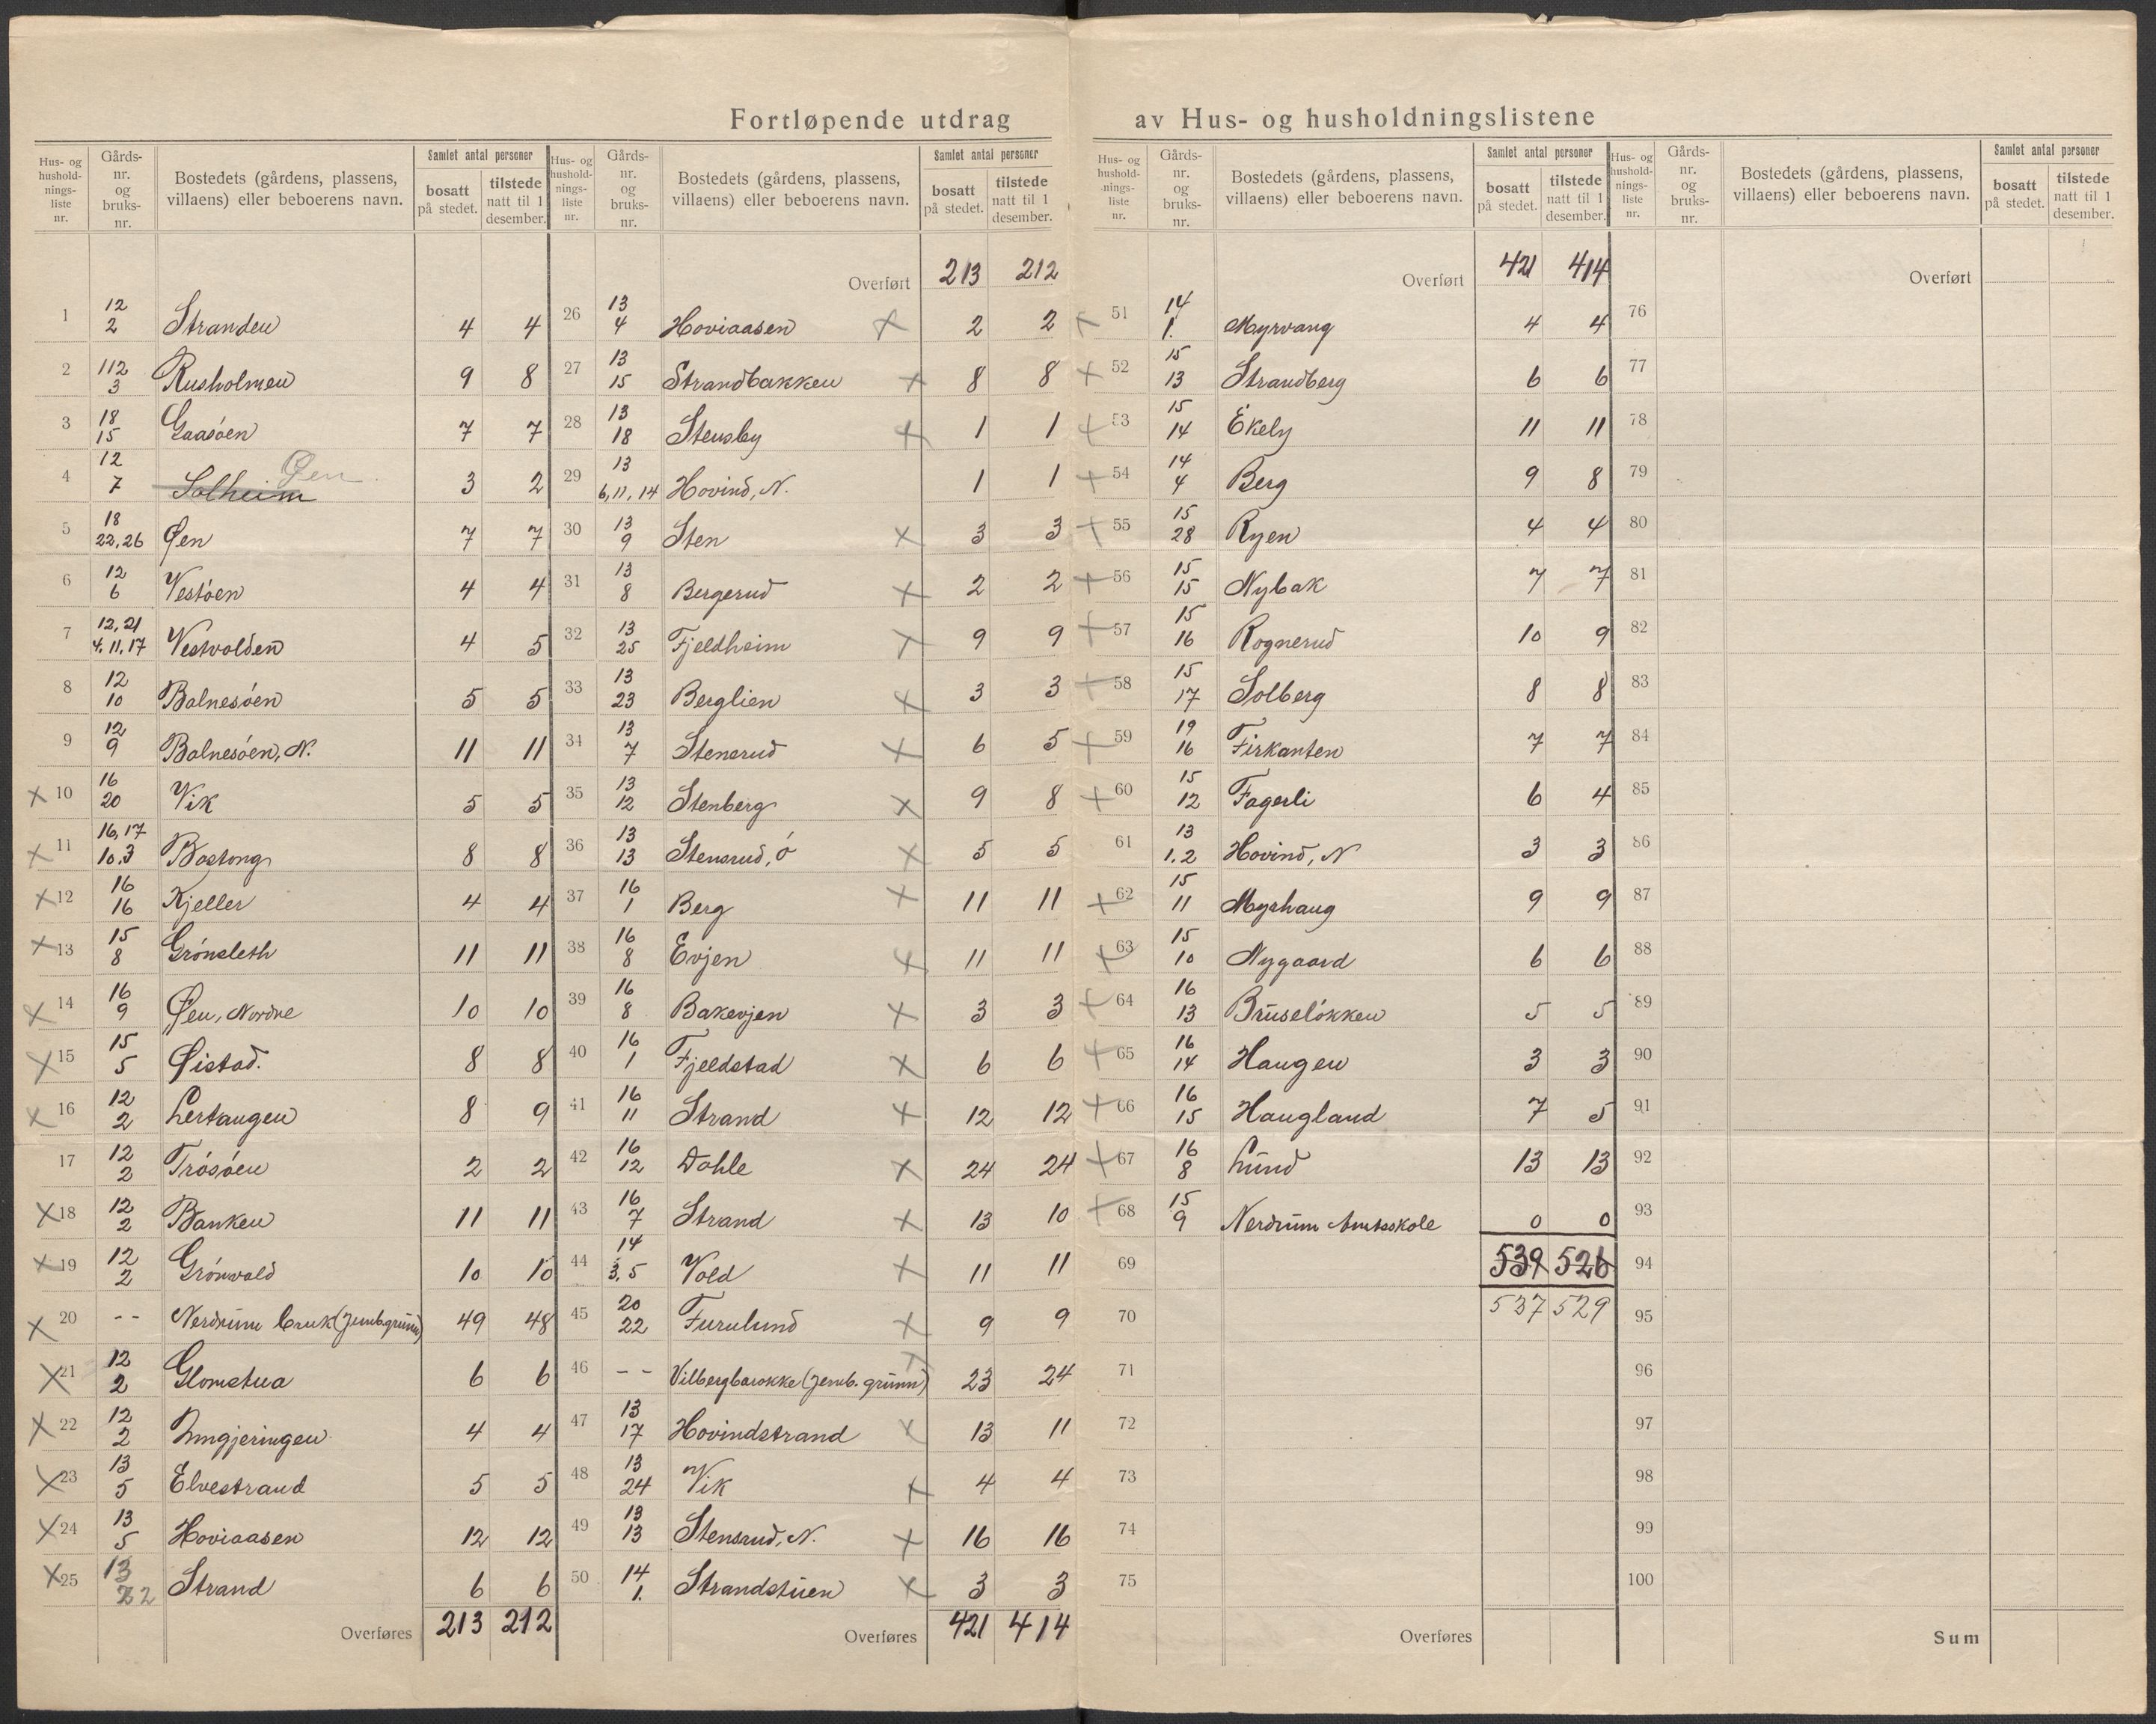 Fortløpende utdrag av Hus- og husholdningslistene
Hus- og hushold-nings-liste nr. Gårds-nr. og bruks-nr. Bostedets (gårdens, plassens, villaens) eller beboerens navn. Samlet antal personer bosatt på stedet. tilstede natt til 1 desember.
1 12 2 Stranden 4 4
2 112 3 Rusholmen 9 8
3 18 15 Gaasøen 7 7
4 12 7 Solheim Øen 3 2
5 18 22,26 Øen 7 7
6 12 6 Vestøen 4 4
7 12,21 4,11,17 Vestvolden 4 5
8 12 10 Balnesøen 5 5
9 12 9 Balnesøen, N. 11 11
x 10 16 20 Vik 5 5
x 11 16,17 10.3 Bostong 8 8
x 12 16 16 Kjeller 4 4
x 13 15 8 Grønsleth 11 11
x 14 16 9 Øen, Nordre 10 10
x 15 15 5 Øistad. 8 8
x 16 12 2 Lertangen 8 9
17 12 2 Trøsøen 2 2
x 18 12 2 Banken 11 11
x 19 12 2 Grønvold 10 10
x 20 - - Nerdrum bruk (Jernb.grunn) 49 48
x 21 12 2 Glomstua 6 6
x 22 12 2 Inngjeringen 4 4
x 23 13 5 Elvestrand 5 5
x 24 13 5 Hoviaasen 12 12
x 25 13 22 Strand 6 6
Overføres 213 212
Hus- og hushold-nings-liste nr. Gårds-nr. og bruks-nr. Bostedets (gårdens, plassens, villaens) eller beboerens navn. Samlet antal personer bosatt på stedet. tilstede natt til 1 desember.
Overført 213 212
26 13 4 Hoviaasen x 2 2
27 13 15 Strandbakken x 8 8
28 13 18 Stensby x 1 1
29 13 6,11,14 Hovind, N. 1 1
30 13 9 Sten x 3 3
31 13 8 Bergerud x 2 2
32 13 25 Fjeldheim x 9 9
33 13 23 Berglien x 3 3
34 13 7 Stenerud x 6 5
35 13 12 Stenberg x 9 8
36 13 13 Stensrud, ø x 5 5
37 16 1 Berg x 11 11
38 16 8 Evjen x 11 11
39 16 8 Bakevjen x 3 3
40 16 1 Fjeldstad x 6 6
41 16 11 Strand x 12 12
42 16 12 Dahle x 24 24
43 16 7 Strand x 13 10
44 14 3,5 Vold x 11 11
45 20 22 Furulund x 9 9
46 - - Vilbergbarakke (Jernb. grunn) x 23 24
47 13 17 Hovindstrand x 13 11
48 13 24 Vik x 4 4
49 13 13 Stensrud, N. x 16 16
50 14 1. Strandstuen x 3 3
Overføres 421 414
Hus- og hushold-nings-liste nr. Gårds-nr. og bruks-nr. Bostedets (gårdens, plassens, villaens) eller beboerens navn. Samlet antal personer bosatt på stedet. tilstede natt til 1 desember.
Overført 421 414
x 51 14 1. Myrvang 4 4
x 52 15 13 Strandberg 6 6
x 53 15 14 Ekely 11 11
x 54 14 4 Berg 9 8
x 55 15 28 Ryen 4 4
x 56 15 15 Nybak 7 7
x 57 15 16 Rognerud 10 9
x 58 15 17 Solberg 8 8
x 59 19 16 Firkanten 7 7
x 60 15 12 Fagerli 6 4
61 13 1.2 Hovind, N 3 3
x 62 15 11 Myrhaug 9 9
x 63 15 10 Nygaard 6 6
x 64 16 13 Bruseløkken 5 5
x 65 16 14 Haugen 3 3
x 66 16 15 Haugland 7 5
x 67 16 8 Lund 13 13
x 68 15 9 Nerdrum Amtsskole 0 0
69 539 526
70 537 529
71
72
73
74
75
Overføres
Hus- og hushold-nings-liste nr. Gårds-nr. og bruks-nr. Bostedets (gårdens, plassens, villaens) eller beboerens navn. Samlet antal personer bosatt på stedet. tilstede natt til 1 desember.
Overført
76
77
78
79
80
81
82
83
84
85
86
87
88
89
90
91
92
93
94
95
96
97
98
99
100
Sum